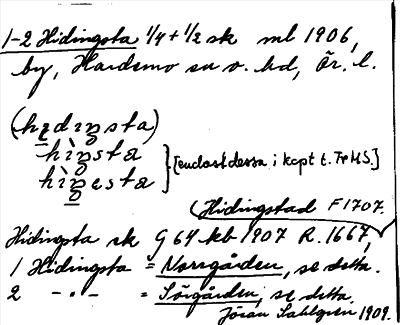 1-2 Hidingsta 1/4 + 1/2 sk ml 1906,
by, Hardemo sn o. hd, Ör. l.
(hidiŋsta)
hiŋsta
hiŋesta } [endast dessa i kopt t. FrHS.]
(Hidingstad F 1707.
Hidingsta sk G 64 kb 1907 R. 1667,
1 Hidingsta = Norrgården, se detta.
2 -"- = Sörgården, se detta.
Jöran Sahlgren 1909.